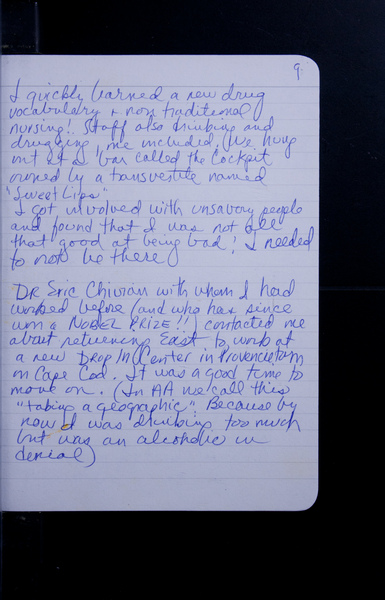 9
I quickly learned a new drug
vocabulary + non traditional
nursing! Staff also drinking and
drugging, me included. We hung
out at a bar called the Cockpit
owned by a transvestite named
"Sweet Lips"
I got involved with unsavory people
and found that I was not all
that good at being bad! I needed
to not be there
DR Eric Chivian with whom I had
worked before (and who has since
won a NOBEL PRIZE!!) contacted me
about returning East to work at
a new DROP IN Center in Provincetown
on Cape Cod. It was a good time to
move on. (In AA we call this
"taking a geographic". Because by
now I was drinking too much
but was an alcoholic in
denial)